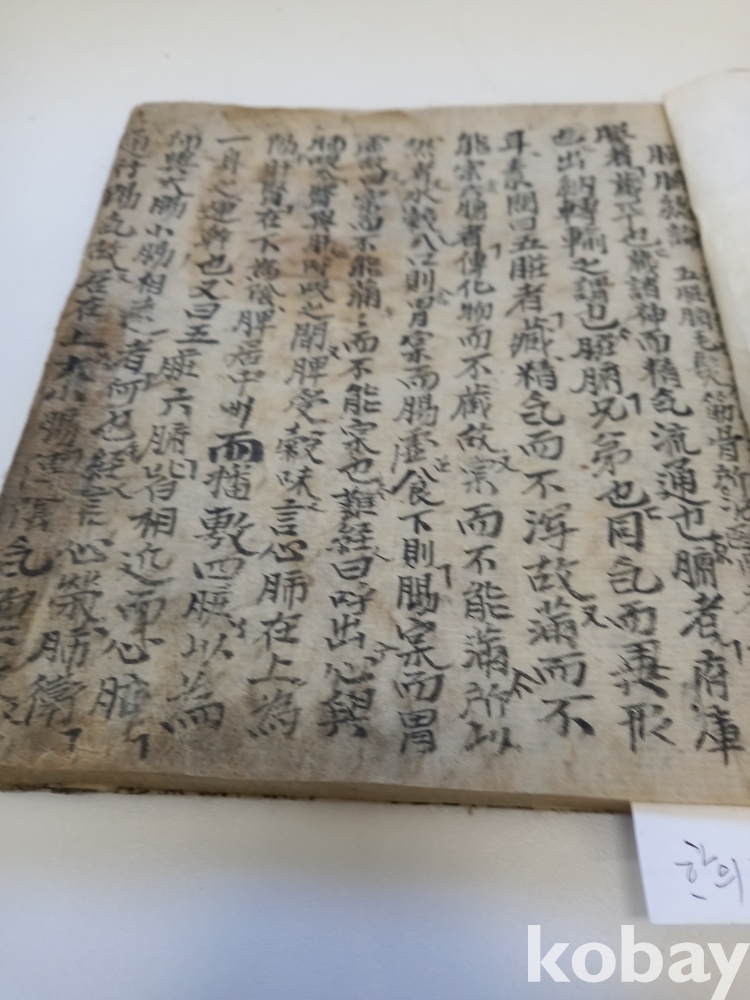 五脏腑毛髮筋骨所
脏者藏也藏諸神而精气流通也腑者府庫
也出納轉輸之謂也脏腑兄弟也同气而異形
耳素問曰五脏者藏精气而不瀉故滿而不
能宲六腑者傳化物而不藏故宲而不能滿所以
然者水穀入口則胃宲而腸虛食下則腸宲而胃
虛故曰宲而不能滿〻而不能宲也難經曰呼出心與
肺吸入腎與肝呼吸之間脾受穀味言心肺在上為
陽肝腎在下為陰脾居中州而播敷四脏以為
一身之運幹也又曰五脏六腑皆相近而心肺
與大腸小腸相遠者何也經言心榮肺衛
通行陽气故居在上大小腸傳陰气而下
한의
kobay